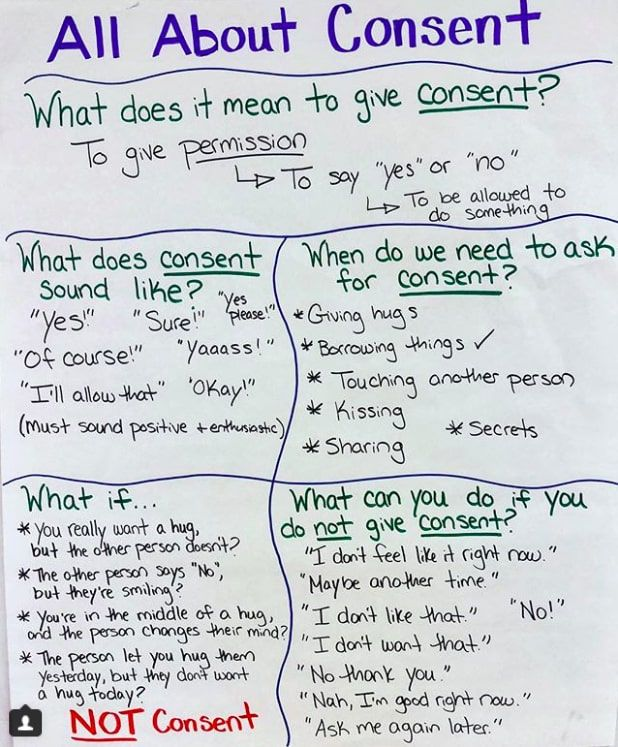 All About Consent
What does it mean to give consent?
To give permission
↳ To say "yes" or "no"
↳ To be allowed to
do something
What does consent
sound like?
"Yes!" "Sure!" "Yes please!"
"Of course!" "Yaaass!"
"I'll allow that" "Okay!"
(must sound positive + enthusiastic)
When do we need to ask
for consent?
* Giving hugs
* Borrowing things ✓
* Touching another person
* Kissing
* Secrets
* Sharing
What if...
* You really want a hug,
but the other person doesn't?
* The other person says "No",
but they're smiling?
* You're in the middle of a hug,
and the person changes their mind?
* The person let you hug them
yesterday, but they don't want
a hug today?
NOT Consent
What can you do if you
do not give consent?
"I don't feel like it right now."
"Maybe another time."
"I don't like that." "No!"
"I don't want that."
"No thank you."
"Nah, I'm good right now."
"Ask me again later."